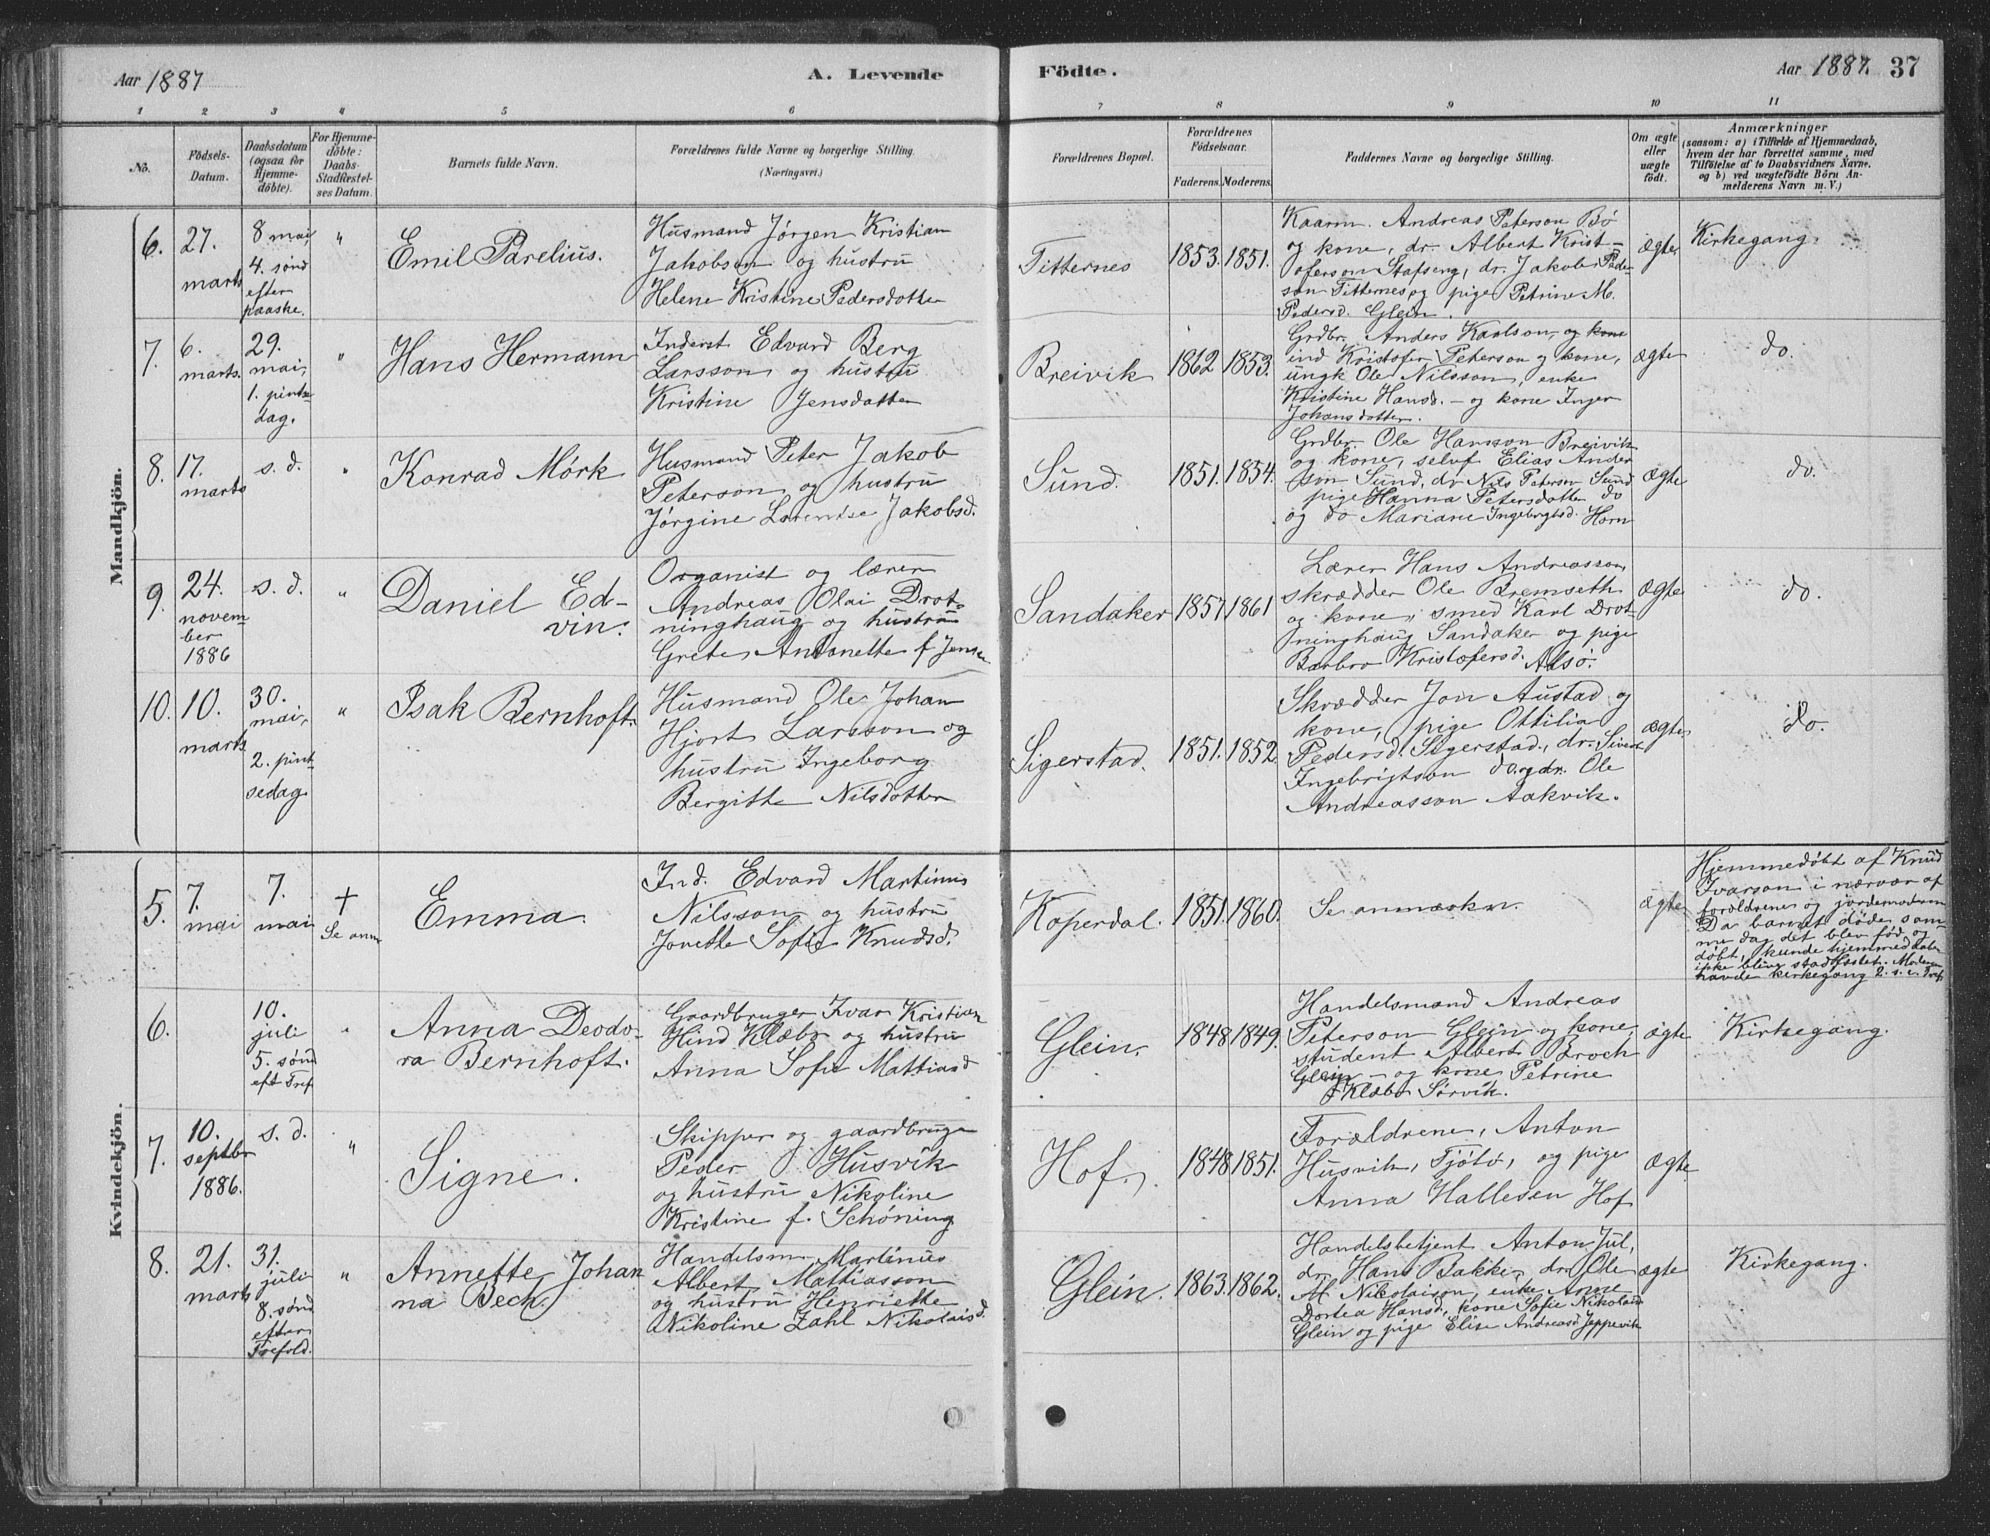 Aar 1887 A. Levende Födte. Aar 1887. 37
1 2 3 4 5 6 7 8 9 10 11
No.
Födsels-
Datum.
Daabsdatum
(ogsaa for
Hjemme-
döbte).
For Hjemme-
döbte:
Daabs-
Stadfæstel-
ses Datum.
Barnets fulde Navn.
Forældrenes fulde Navne og borgerlige Stilling.
(Næringsvei.)
Forældrenes Bopæl.
Forældrenes
Födselsaar.
Faderens. Moderens.
Faddernes Navne og borgerlige Stilling.
Om ægte
eller
uægte
födt.
Anmærkninger
(saasom: a) i Tilfælde af Hjemmedaab,
hvem der har forrettet samme, med
Tilföielse af to Daabsvidners Navne.
og b) ved uægtefödte Börn An-
melderens Navn m. V.)
Mandkjön.
6.
27.
marts
8 mai,
4. sønd
efter
paaske.
"
Emil Parelius.
Husmand Jørgen Kristian
Jakobson og hustru
Helene Kristine Pedersdotter
Titternes
1853. 1851.
Kaarm. Andreas Peterson Bø
og kone, dr. Albert Krist-
oferson Stafseng, dr. Jakob Peder-
son Titternes og pige Petrine M.
Pedersd. Glein.
ægte
Kirkegang.
7.
6.
marts.
29.
mai,
1. pintse
dag.
"
Hans Hermann
Inderst Edvard Berg
Larsson og hustru
Kristine Jensdatter
Breivik
1862 1853.
Grdbr. Anders Karlson, og kone
ind Kristofer Peterson og kone,
ungk Ole Nilsson, enke
Kristine Hansd. - og kone Inger
Johansdotter.
ægte
do.
8.
17.
marts
s. d.
"
Konrad Mørk
Husmand Peter Jakob
Peterson og hustru
Jørgine Lorentse Jakobsd.
Sund.
1851. 1854.
Grdbr. Ole Hansson Breivik
og kone, selvf Elias Ander
son Sund, dr Nils Peterson Sund
pige Hanna Petersdotter do
og do Mariane Ingebrigtsd. Horn
ægte
do.
9.
24.
novem-
ber
1886
s. d.
"
Daniel Ed-
vin.
Organist og lærer
Andreas Olai Drot-
ninghaug og hustru
Grete Antonette f Jensen
Sandaker
1857 1861
Lærer Hans Andreasson,
skrædder Ole Bremseth
og kone, smed Karl Drot
ninghaug Sandaker og pige
Barbro Kristofersd. Alsø.
ægte
do.
10.
10.
marts
30.
mai,
2. pint-
sedag
"
Isak Bernhoft.
Husmand Ole Johan
Hjort Larsson og
hustru Ingeborg
Bergitte Nilsdotter
Sigerstad.
1851. 1852.
Skrædder Jon Austad og
kone, pige Ottilia
Pedersd. Sigerstad, dr. Sivert
Ingebrigtson do. og dr. Ole
Andreasson Aakvik.
ægte
do.
Kvindekjön.
5.
7.
mai
7.
mai
†
Se anm
Emma
Ind. Edvard Martinus
Nilsson og hustru
Jonette Sofie Knudsd.
Koperdal.
1851. 1860.
Se anmærkn.
ægte
Hjemmedøbt af Knud
Ivarson i nærvær af
forældrene og jordemoderen
Da barnet døde sam-
me dag det blev fød og
døbt, kunde hjemmedaaben
ikke blive stadfæstet. Moderen
havde kirkegang 2. s. e. Tref
6.
10.
juli
5. sønd
eft Tref
"
Anna Deodo-
ra Bernhoft.
Gaardbruger Ivar Kristian
Hind Klæbo og hustru
Anna Sofie Mattiasd
Glein.
1848 1849.
Handelsmand Andreas
Peterson Glein og kone,
student Albert Broch
Glein - og kone Petrine
f Klæbo Sørvik.
ægte
Kirkegang.
7.
10.
septbr
1886.
s. d.
"
Signe.
Skipper og gaardbruge
Peder Husvik
og hustru Nikoline
Kristine f. Schøning
Hof.
1848 1851.
Forældrene, Anton
Husvik, Tjøtø, og pige
Anna Hallesen Hof
ægte
8.
21.
marts
31.
juli
8. sønd
efter
Trefold.
"
Annette Johan
na Bech.
Handelsm. Martinus
Albert Mattiasson
og hustru Henriette
Nikoline Zahl Nikolaisd.
Glein.
1863. 1862.
Handelsbetjent Anton Jul,
dr. Hans Bakke, dr. Ole
M. Nikolaison, enke Anne
Dortea Hansd, kone Sofie Nikolaisd
Glein og pige Elise Andreasd Jeppevik
ægte
Kirkegang.